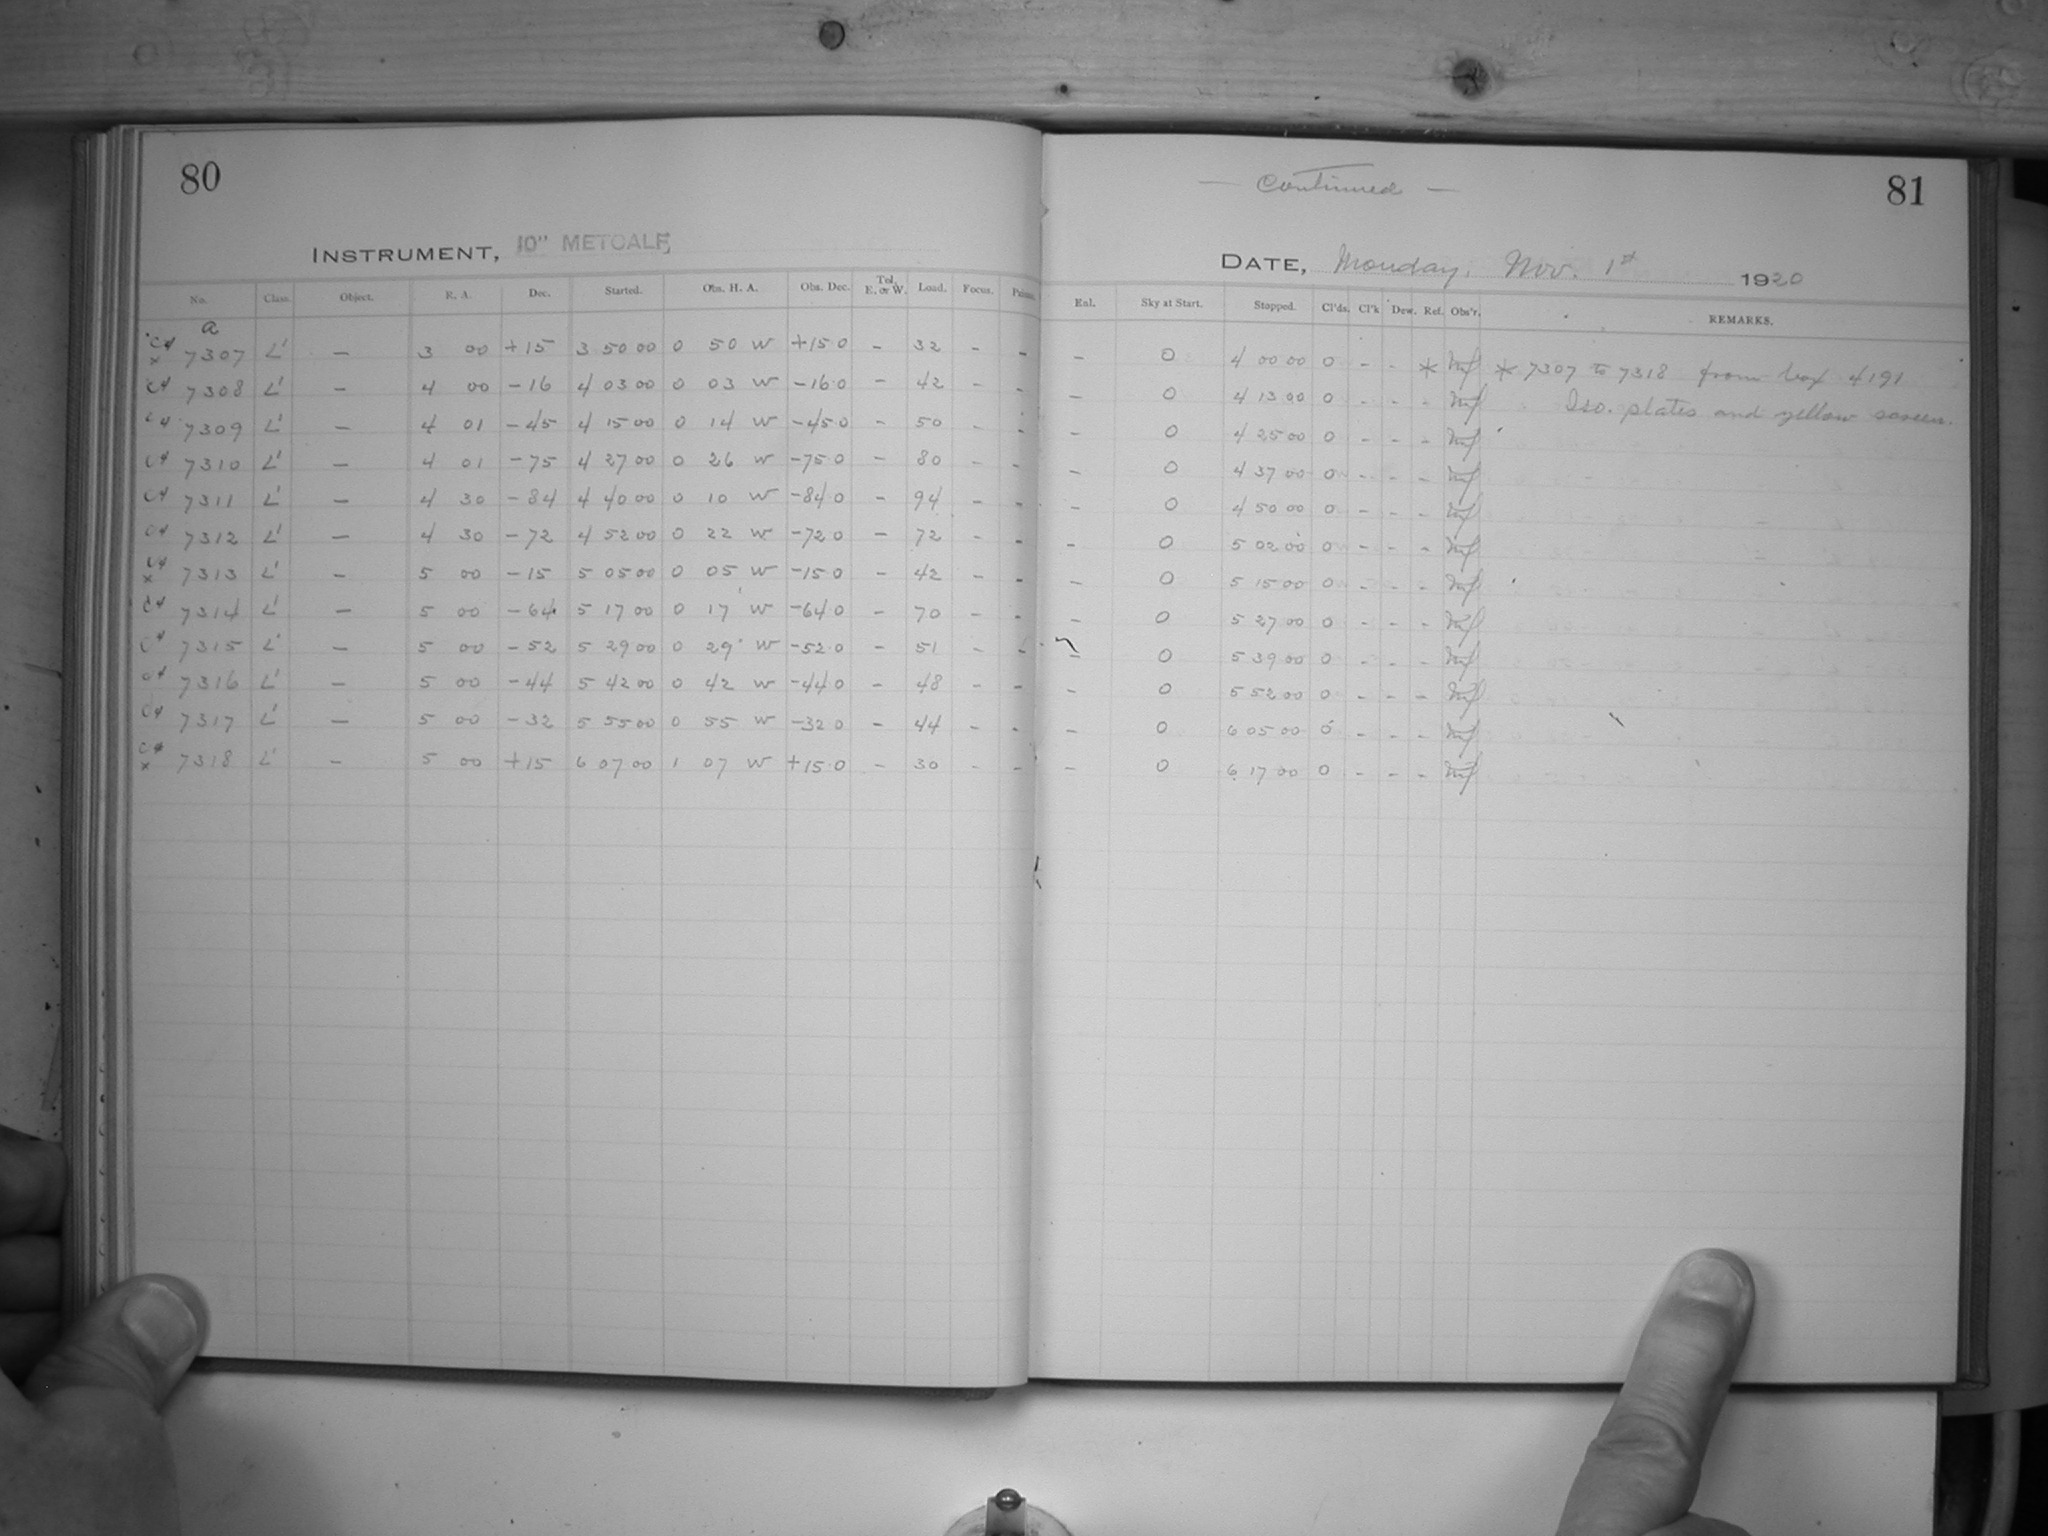 80
INSTRUMENT, 10" METCALF,
No. Class. Object. R. A. Dec. Started. Obs. H. A. Obs. Dec. Tel. E. or W. Load. Focus.
a
7307 L' — 3 00 +15 3 50 00 0 50 W +15 0 - 32 - -
7308 L' — 4 00 -16 4 03 00 0 03 W -16 0 - 42 - -
7309 L' — 4 01 -45 4 15 00 0 14 W -45 0 - 50 - -
7310 L' — 4 01 -75 4 27 00 0 26 W -75 0 - 80 - -
7311 L' — 4 30 -84 4 40 00 0 10 W -84 0 - 94 - -
7312 L' — 4 30 -72 4 52 00 0 22 W -72 0 - 72 - -
7313 L' — 5 00 -15 5 05 00 0 05 W -15 0 - 42 - -
7314 L' — 5 00 -64 5 17 00 0 17 W -64 0 - 70 - -
7315 L' — 5 00 -52 5 29 00 0 29 W -52 0 - 51 - -
7316 L' — 5 00 -44 5 42 00 0 42 W -44 0 - 48 - -
7317 L' — 5 00 -32 5 55 00 0 55 W -32 0 - 44 - -
7318 L' — 5 00 +15 6 07 00 1 07 W +15 0 - 30 - -
— Continued —
81
DATE, Monday, Nov. 1st 1920
Enl. Sky at Start. Stopped. Cl'ds. Cl'k Dew. Ref. Obs'r. REMARKS.
- 0 4 00 00 0 - - * * 7307 to 7318 from box 4191
- 0 4 13 00 0 - - - Iso. plates and yellow screen.
- 0 4 25 00 0 - - -
- 0 4 37 00 0 - - -
- 0 4 50 00 0 - - -
- 0 5 02 00 0 - - -
- 0 5 15 00 0 - - -
- 0 5 27 00 0 - - -
- 0 5 39 00 0 - - -
- 0 5 52 00 0 - - -
- 0 6 05 00 0 - - -
- 0 6 17 00 0 - - -